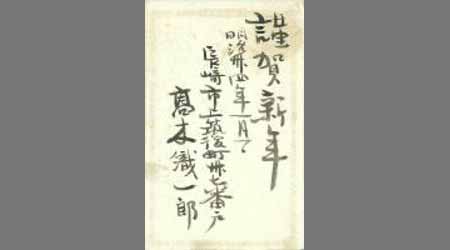 謹賀新年
明治卅四年一月一日
長崎市上筑後町卅七番戸
髙木織一郎